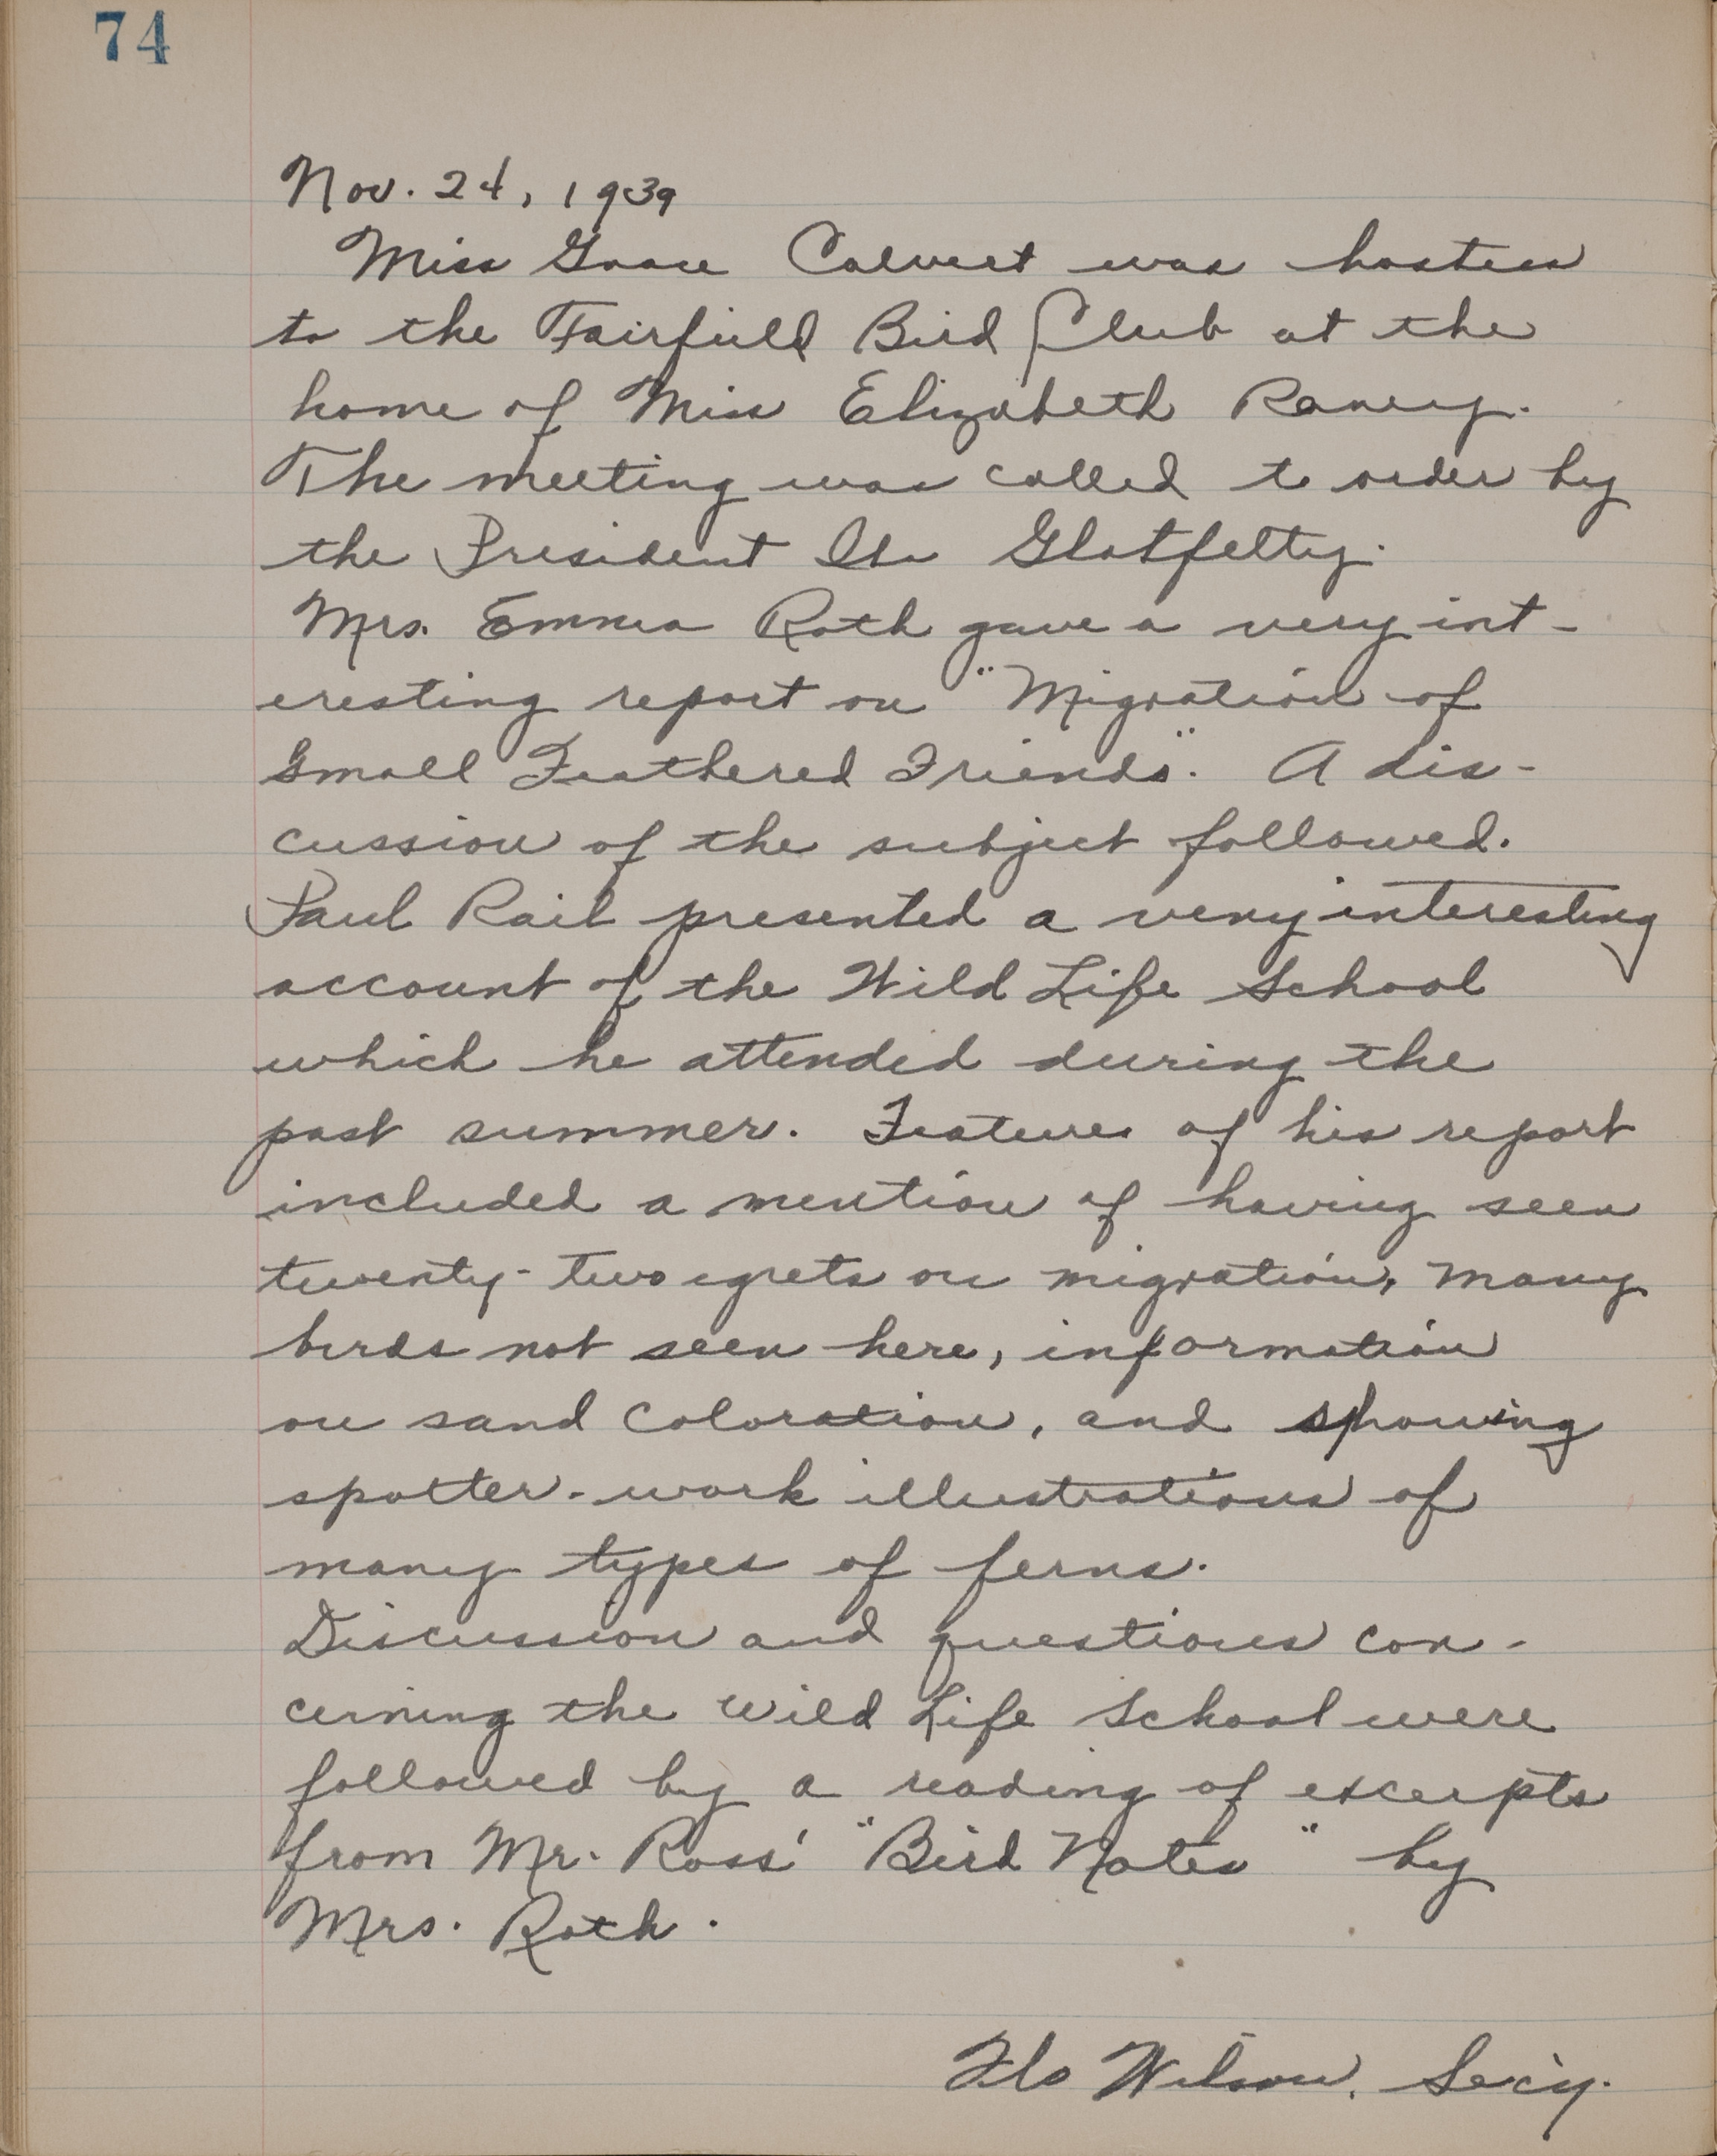 74
Nov. 24, 1939
Miss Grace Calvert was hostess
to the Fairfield Bird Club at the
home of Miss Elizabeth Raney.
The meeting was called to order by
the President Ila Glotfelty.
Mrs. Emma Roth gave a very int-
eresting report on "Migration of
Small Feathered Friends". A dis-
cussion of the subject followed.
Paul Rail presented a very interesting
account of the Wild Life School
which he attended during the
past summer. Features of his report
included a mention of having seen
twenty-two egrets on migration, many
birds not seen here, information
on sand coloration, and showing
spatter-work illustrations of
many types of ferns.
Discussion and questions con-
cerning the Wild Life School were
followed by a reading of excerpts
from Mr. Ross' "Bird Notes" by
Mrs. Roth.
Flo Wilson, Sec'y.